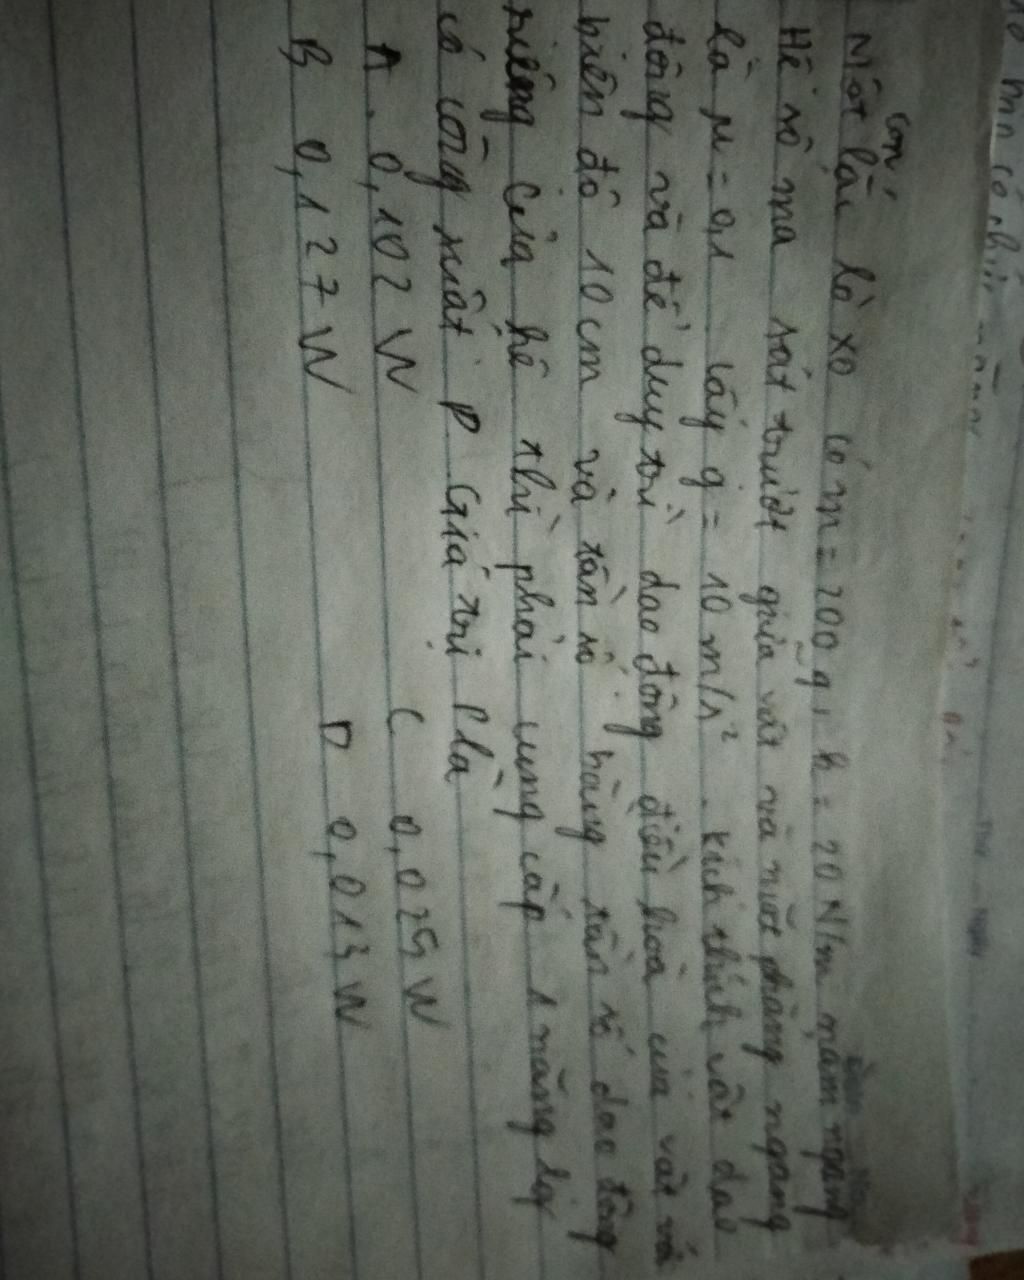 Một con lắc lò xo có m = 200 g, k = 20 N/m nằm ngang
Hệ số ma sát trượt giữa vật và mặt phẳng ngang
là μ = 0,1 lấy g = 10 m/s². Kích thích vật dao
động và để duy trì dao động điều hoà của vật với
biên độ 10 cm và tần số bằng tần số dao động
riêng của hệ thì phải cung cấp 1 năng lg
có công suất P Giá trị P là
A. 0,102 W C 0,025 W
B 0,127 W D 0,013 W